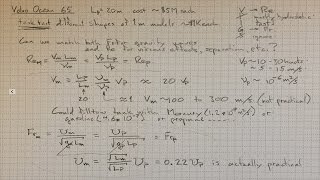 Volvo Ocean 65 Lp = 20m cost ~ $5M each
tank test different shapes of 1m models ~ $1K each
Can we match both Fr for gravity waves
and Re for viscous effects, separation, etc.?
Re_m = V_m L_m / ν_m = V_p L_p / ν_p
V_m = ν_m/ν_p L_p/L_m V_p ≈ 20 V_p
V_p ~ 10-30 knots
≈ 5-15 m/s
ν_p ~ 10⁻⁶ m²/s
20 ≈ 1 V_m ~ 100 to 300 m/s (not practical)
Could fill tow tank with Mercury (1.2×10⁻⁷ m²/s) or
gasoline (4.6×10⁻⁷) or propanol
Fr_m = U_m / √(g L_m) = U_p / √(g L_p) = Fr_p
U_m = √L_m / √L_p U_p = 0.22 U_p is actually practical